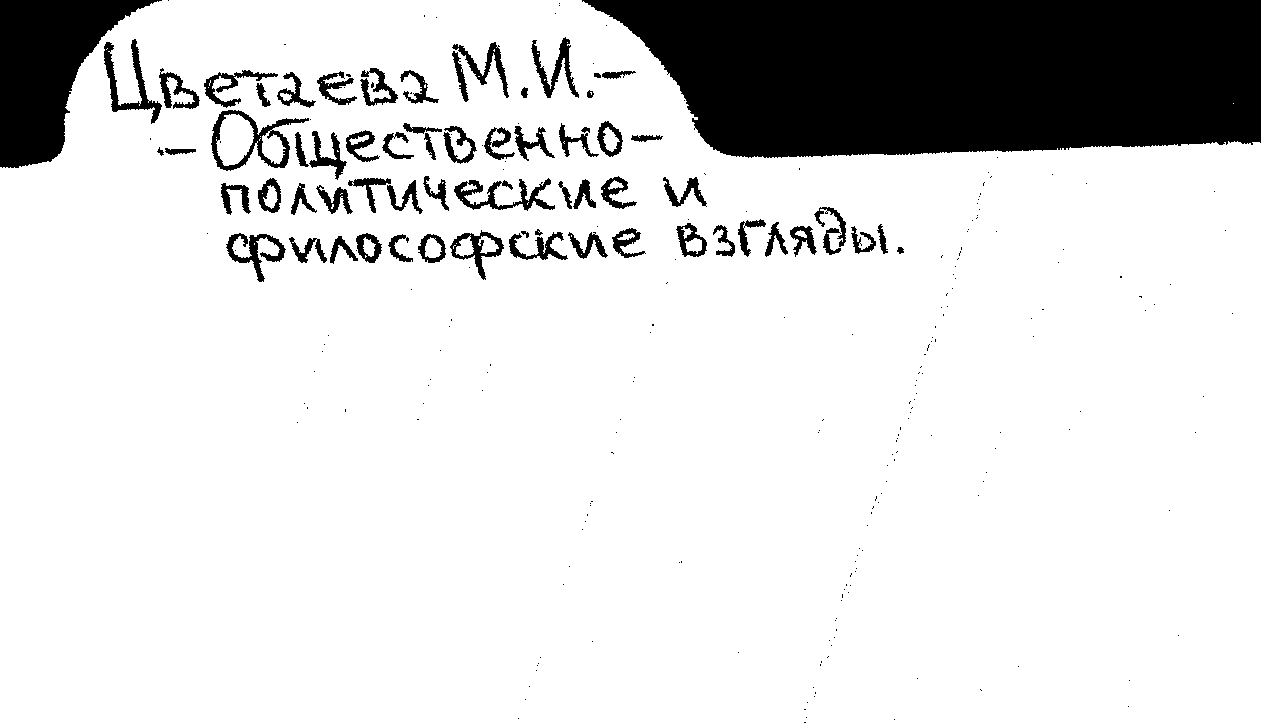 Цветаева М.И.-
- Общественно-
политические и
философские взгляды.